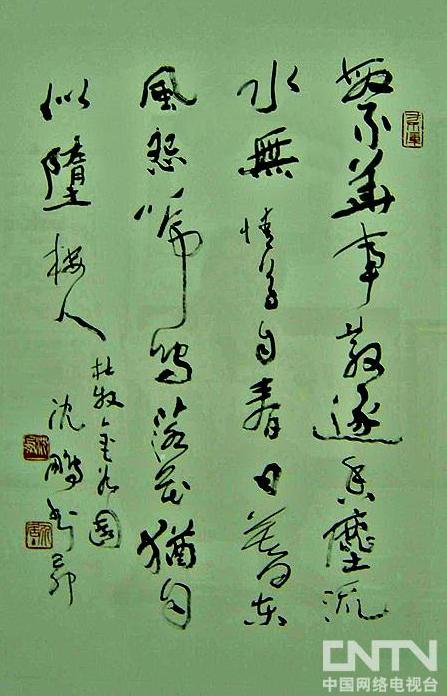 繁華事散逐香塵流
水無情草自春日暮东
風怨啼鸟落花猶自
似墮楼人
杜牧金谷園
沈鵬书己卯
CNTV
中国网络电视台